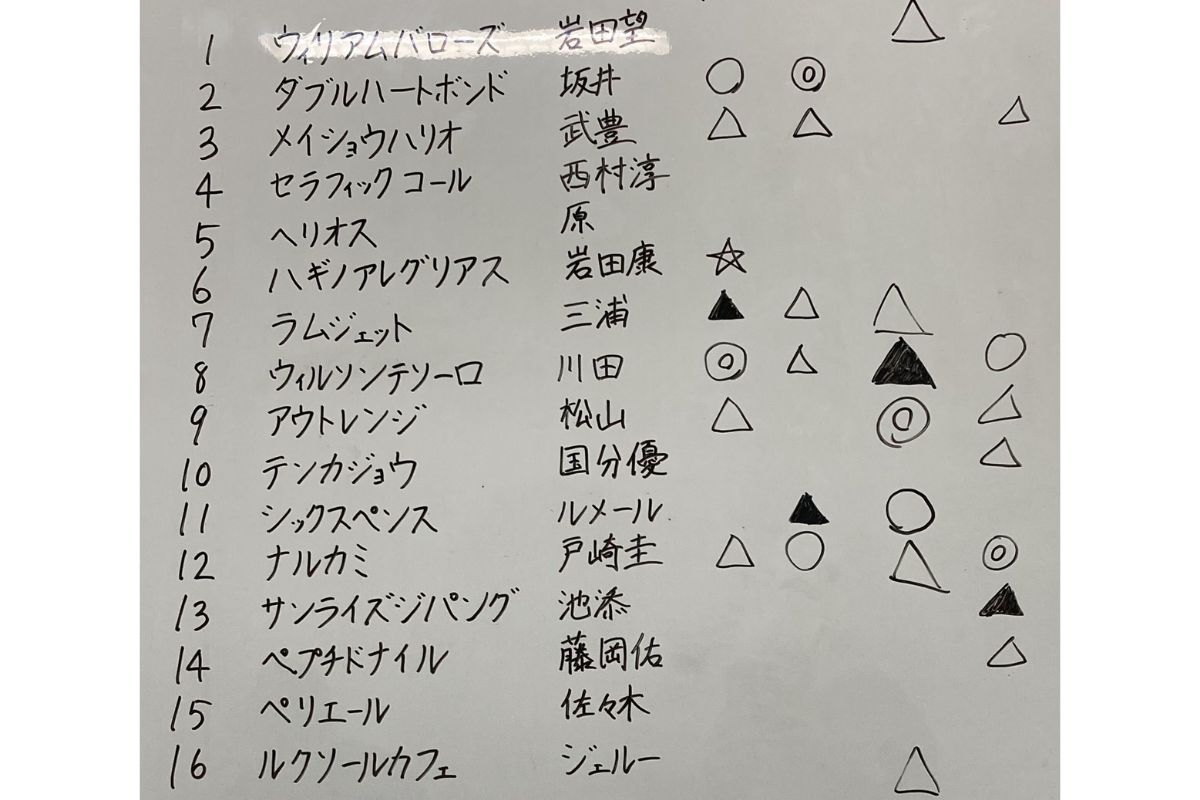 1 ウィリアムバローズ 岩田望 △
2 ダブルハートボンド 坂井 ○ ◎
3 メイショウハリオ 武豊 △ △ △
4 セラフィックコール 西村淳
5 ヘリオス 原
6 ハギノアレグリアス 岩田康 ☆
7 ラムジェット 三浦 ▲ △ △
8 ウィルソンテソーロ 川田 ◎ △ ▲ ○
9 アウトレンジ 松山 △ ◎ △
10 テンカジョウ 国分優 △
11 シックスペンス ルメール ▲ ○
12 ナルカミ 戸崎圭 △ ○ △ ◎
13 サンライズジパング 池添 ▲
14 ペプチドナイル 藤岡佑 △
15 ペリエール 佐々木
16 ルクソールカフェ ジェルー △